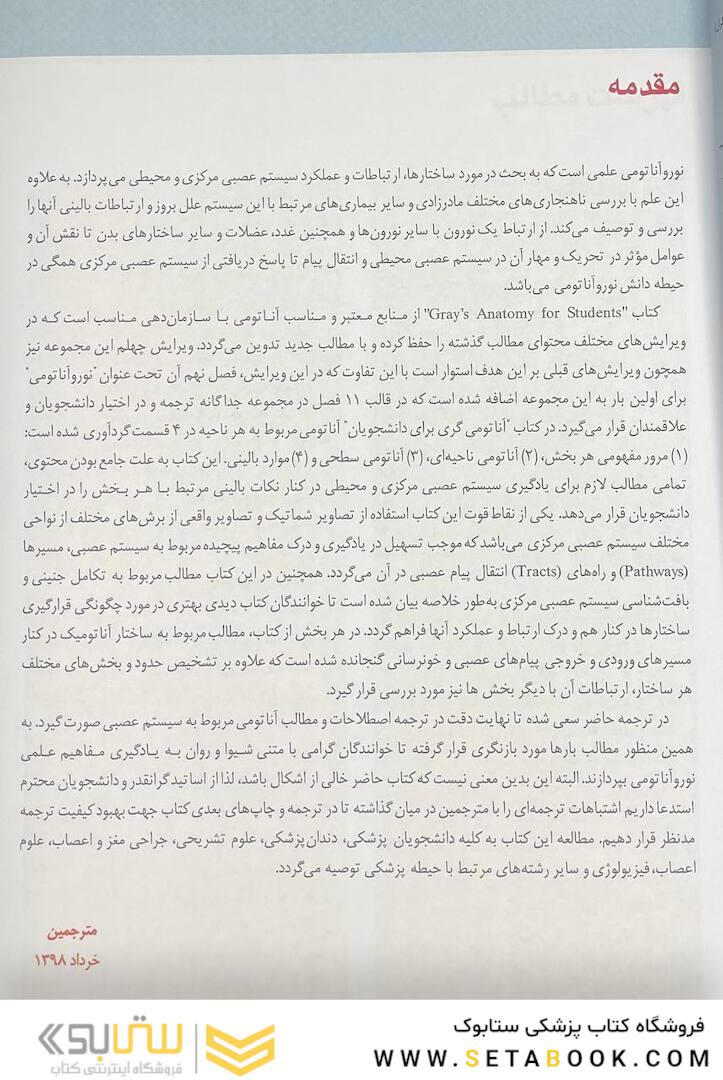 مقدمه
نوروآناتومی علمی است که به بحث در مورد ساختارها، ارتباطات و عملکرد سیستم عصبی مرکزی و محیطی می‌پردازد. به علاوه
این علم با بررسی ناهنجاری‌های مختلف مادرزادی و سایر بیماری‌های مرتبط با این سیستم علل بروز و ارتباطات بالینی آنها را
بررسی و توصیف می‌کند. از ارتباط یک نورون با سایر نورون‌ها و همچنین غدد، عضلات و سایر ساختارهای بدن تا نقش آن و
عوامل مؤثر در تحریک و مهار آن در سیستم عصبی محیطی و انتقال پیام تا پاسخ دریافتی از سیستم عصبی مرکزی همگی در
حیطه دانش نوروآناتومی می‌باشد.
کتاب "Gray's Anatomy for Students" از منابع معتبر و مناسب آناتومی با سازمان‌دهی مناسب است که در
ویرایش‌های مختلف محتوای مطالب گذشته را حفظ کرده و با مطالب جدید تدوین می‌گردد. ویرایش چهلم این مجموعه نیز
همچون ویرایش‌های قبلی بر این هدف استوار است با این تفاوت که در این ویرایش، فصل نهم آن تحت عنوان "نوروآناتومی"
برای اولین بار به این مجموعه اضافه شده است که در قالب ۱۱ فصل در مجموعه جداگانه ترجمه و در اختیار دانشجویان و
علاقمندان قرار می‌گیرد. در کتاب "آناتومی گری برای دانشجویان" آناتومی مربوط به هر ناحیه در ۴ قسمت گردآوری شده است:
(۱) مرور مفهومی هر بخش، (۲) آناتومی ناحیه‌ای، (۳) آناتومی سطحی و (۴) موارد بالینی. این کتاب به علت جامع بودن محتوی،
تمامی مطالب لازم برای یادگیری سیستم عصبی مرکزی و محیطی در کنار نکات بالینی مرتبط با هر بخش را در اختیار
دانشجویان قرار می‌دهد. یکی از نقاط قوت این کتاب استفاده از تصاویر شماتیک و تصاویر واقعی از برش‌های مختلف از نواحی
مختلف سیستم عصبی مرکزی می‌باشد که موجب تسهیل در یادگیری و درک مفاهیم پیچیده مربوط به سیستم عصبی، مسیرها
(Pathways) و راه‌های (Tracts) انتقال پیام عصبی در آن می‌گردد. همچنین در این کتاب مطالب مربوط به تکامل جنینی و
بافت‌شناسی سیستم عصبی مرکزی به‌طور خلاصه بیان شده است تا خوانندگان کتاب دیدی بهتری در مورد چگونگی قرارگیری
ساختارها در کنار هم و درک ارتباط و عملکرد آنها فراهم گردد. در هر بخش از کتاب، مطالب مربوط به ساختار آناتومیک در کنار
مسیرهای ورودی و خروجی پیام‌های عصبی و خونرسانی گنجانده شده است که علاوه بر تشخیص حدود و بخش‌های مختلف
هر ساختار، ارتباطات آن با دیگر بخش ها نیز مورد بررسی قرار گیرد.
در ترجمه حاضر سعی شده تا نهایت دقت در ترجمه اصطلاحات و مطالب آناتومی مربوط به سیستم عصبی صورت گیرد. به
همین منظور مطالب بارها مورد بازنگری قرار گرفته تا خوانندگان گرامی با متنی شیوا و روان به یادگیری مفاهیم علمی
نوروآناتومی بپردازند. البته این بدین معنی نیست که کتاب حاضر خالی از اشکال باشد، لذا از اساتید گرانقدر و دانشجویان محترم
استدعا داریم اشتباهات ترجمه‌ای را با مترجمین در میان گذاشته تا در ترجمه و چاپ‌های بعدی کتاب جهت بهبود کیفیت ترجمه
مدنظر قرار دهیم. مطالعه این کتاب به کلیه دانشجویان پزشکی، دندان‌پزشکی، علوم تشریحی، جراحی مغز و اعصاب، علوم
اعصاب، فیزیولوژی و سایر رشته‌های مرتبط با حیطه پزشکی توصیه می‌گردد.
مترجمین
خرداد ۱۳۹۸
فروشگاه کتاب پزشکی ستابوک
WWW.SETABOOK.COM
ستابوک
فروشگاه اینترنتی کتاب